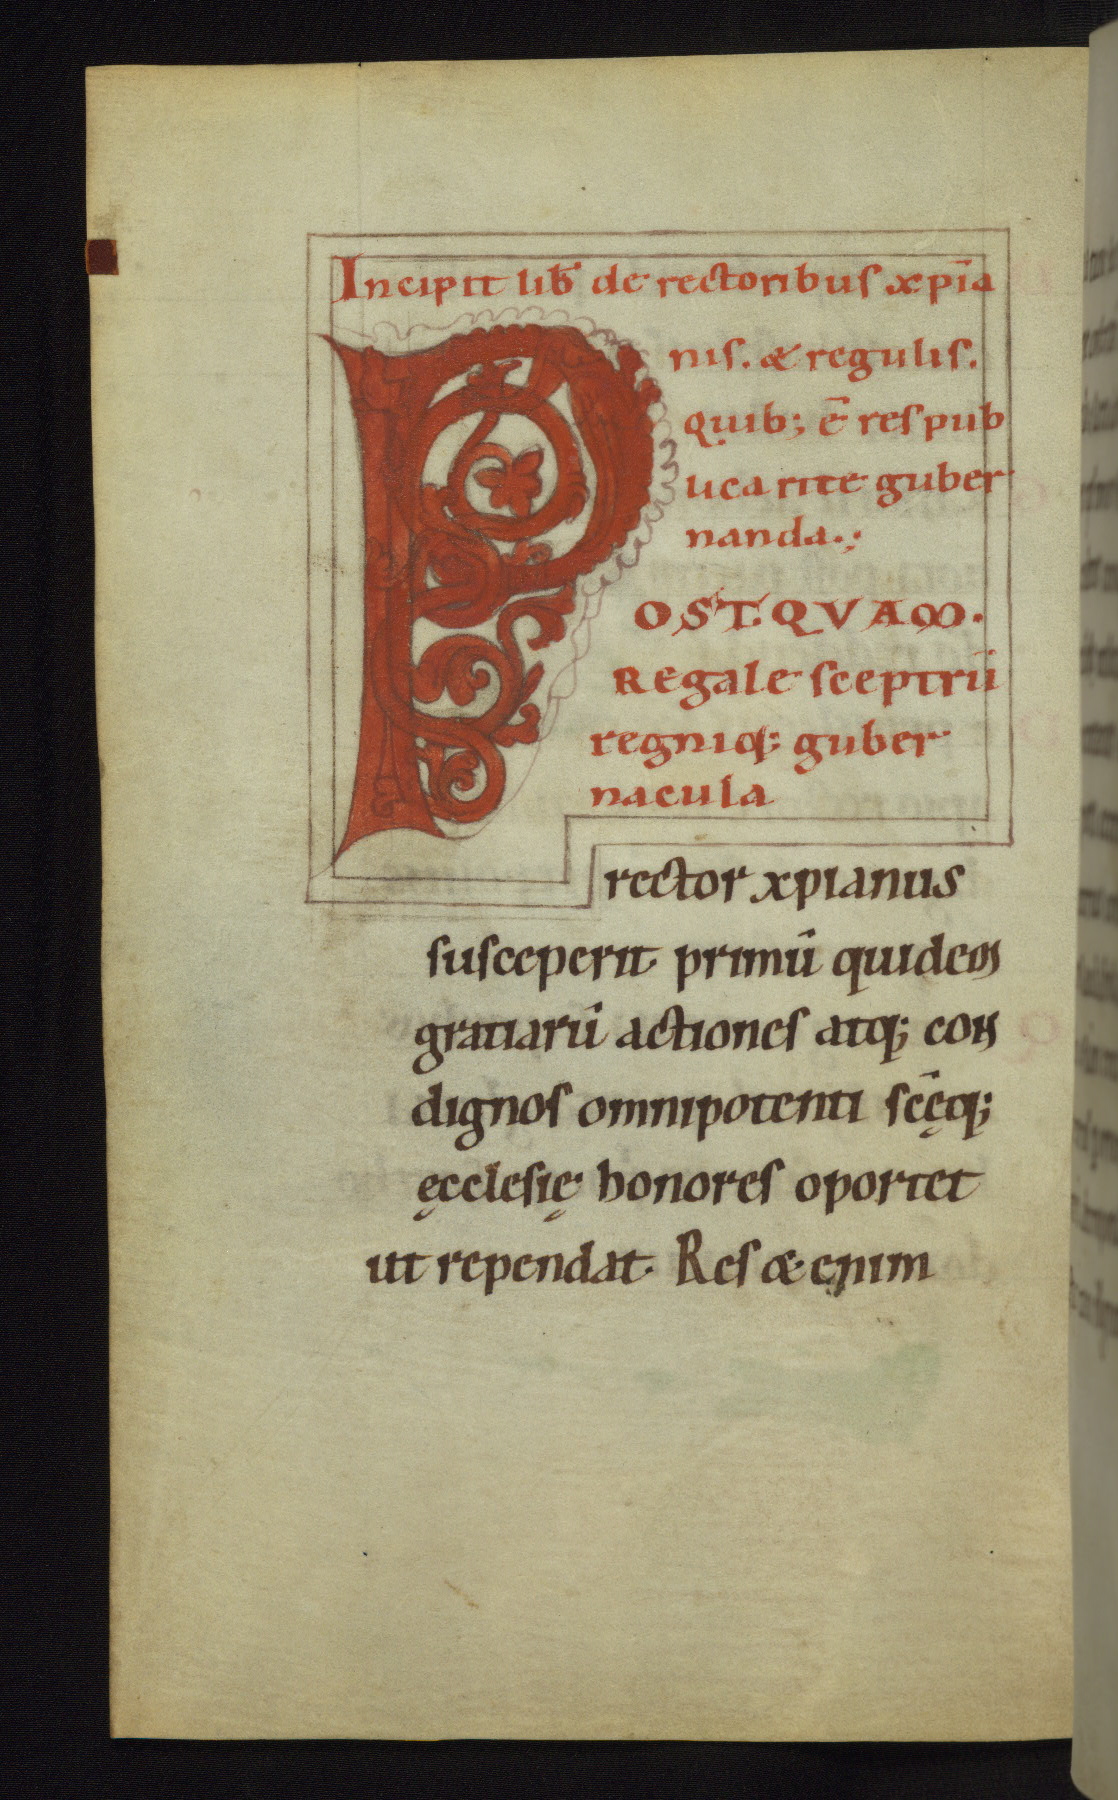 Incipit lib̄ de rectoribus xp̄ia
nis. & regulis.
Quib; ē res pub
lica rite guber
nanda.;
POST.QVAM.
Regale sceptrū
regniq; guber
nacula
rector xpianus
susceperit primū quidem
gratiarū actiones atq; con
dignos omnipotenti scęq̄;
ęcclesię honores oportet
ut rependat. Res & enim